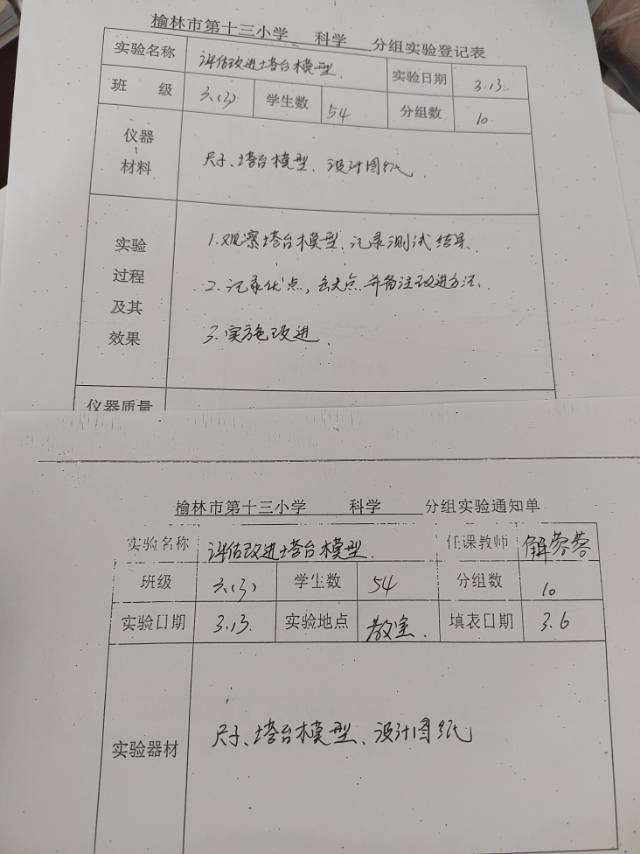 榆林市第十三小学 科学 分组实验登记表
实验名称 评估改进塔台模型 实验日期 3.13.
班 级 六(3) 学生数 54 分组数 10
仪器
材料
尺子、塔台模型、设计图纸.
实验
过程
及其
效果
1.观察塔台模型、记录测试结果、
2.记录优点,缺点并备注改进方法.
3.实施改进
仪器质量
榆林市第十三小学 科学 分组实验通知单
实验名称 评估改进塔台模型 任课教师
班级 六(3) 学生数 54 分组数 10
实验日期 3.13. 实验地点 教室. 填表日期 3.6
实验器材 尺子、塔台模型、设计图纸